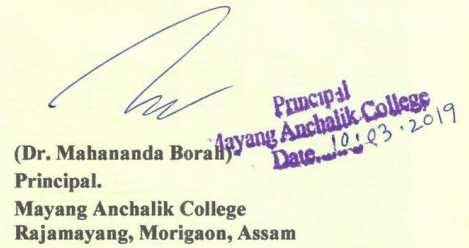 Principal
Mayang Anchalik College
Date. 10.03.2019
(Dr. Mahananda Borah)
Principal.
Mayang Anchalik College
Rajamayang, Morigaon, Assam